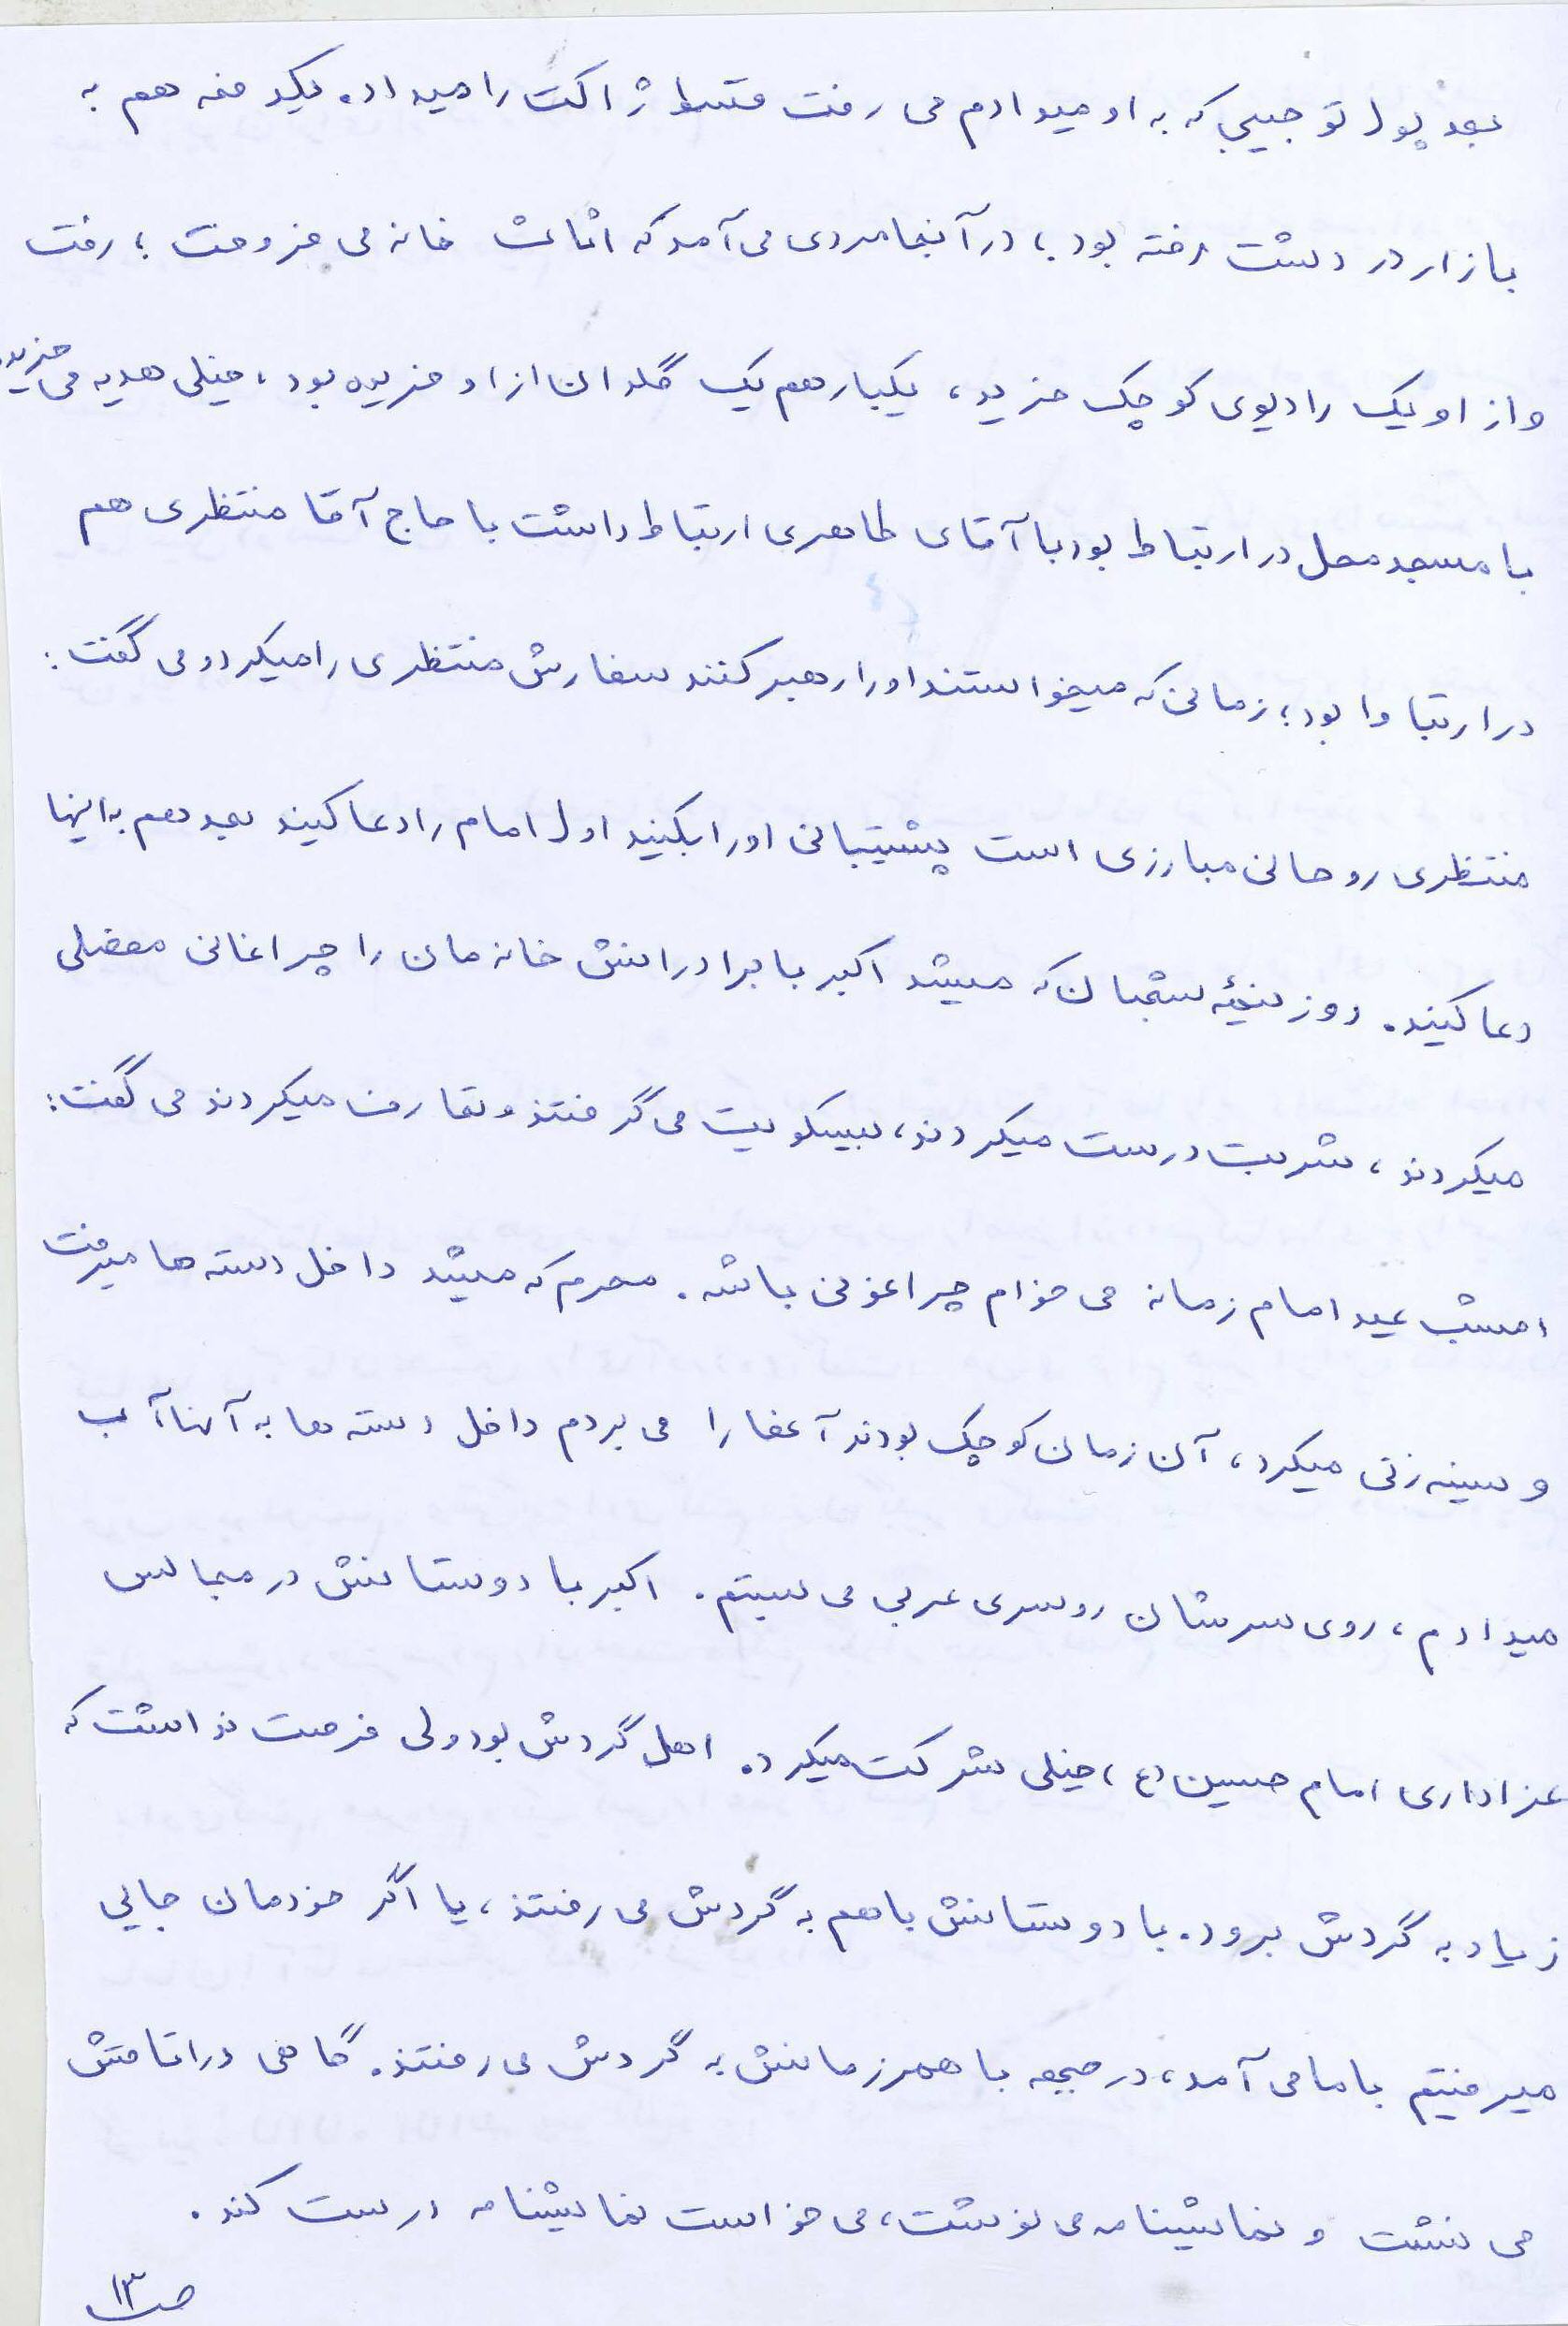 بعد پول تو جیبی که به او میدادم می رفت قسط ژاکت را میداد. یکدفعه هم به
بازار در دشت رفته بود؛ در آنجا مردی می آمد که اثاث خانه می فروخت؛ رفت
و از او یک رادیوی کوچک خرید، یکبار هم یک گلدان از او خریده بود، خیلی هدیه می خرید.
با مسجد محل در ارتباط بود با آقای طاهری ارتباط داشت با حاج آقا منتظری هم
در ارتباط بود؛ زمانی که میخواستند او را رهبر کنند سفارش منتظری را میکرد و می گفت:
منتظری روحانی مبارزی است پشتیبانی او را بکنید اول امام را دعا کنید بعد هم به اینها
دعا کنید. روز نیمۀ شعبان که میشد اکبر با برادرانش خانه مان را چراغانی مفصلی
میکردند، شربت درست میکردند، بیسکویت می گرفتند و تعارف میکردند می گفت:
امشب عید امام زمانه می خوام چراغونی باشه. محرم که میشد داخل دسته ها میرفت
و سینه زنی میکرد، آن زمان کوچک بودند آنها را می بردم داخل دسته ها به آنها آب
میدادم، روی سرشان روسری عربی می بستم. اکبر با دوستانش در مجالس
عزاداری امام حسین (ع) خیلی شرکت میکرد. اهل گردش بود ولی فرصت نداشت که
زیاد به گردش برود. با دوستانش با هم به گردش می رفتند، یا اگر خودمان جایی
میرفتیم با ما می آمد، در جبهه با همرزمانش به گردش می رفتند. گاهی در اتاقش
می نشست و نمایشنامه می نوشت، می خواست نمایشنامه درست کند.
ص ۱۳